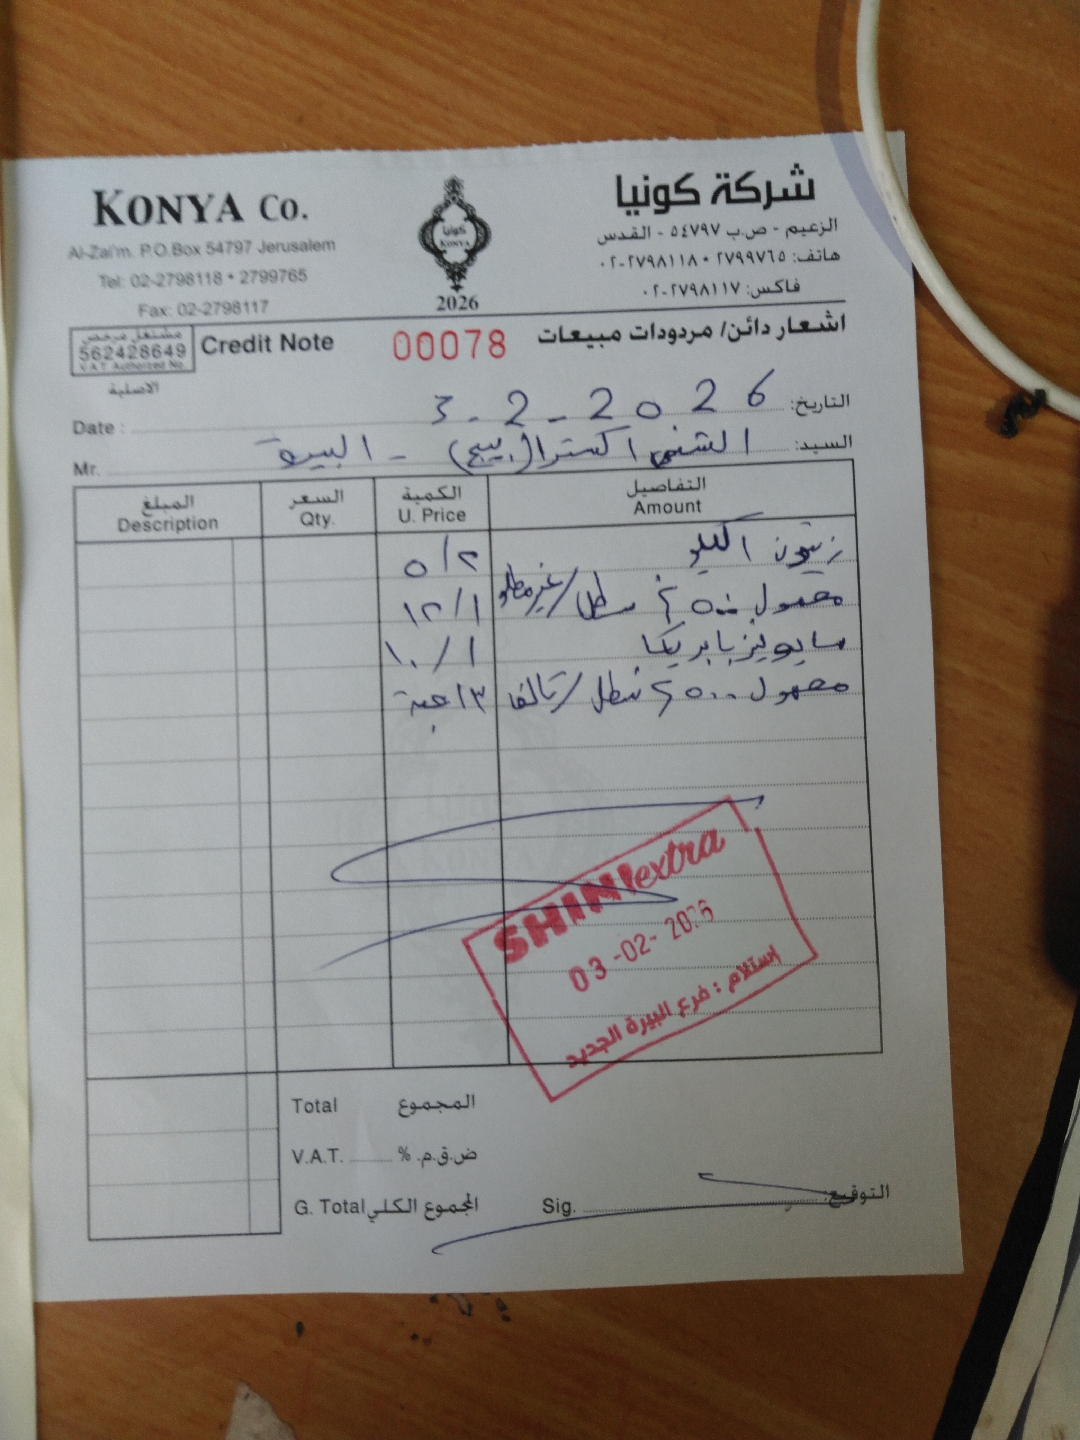 KONYA Co.
Al-Zai'm. P.O.Box 54797 Jerusalem
Tel: 02-2798118 • 2799765
Fax: 02-2798117
كونيا
KONYA
2026
شركة كونيا
الزعيم - ص.ب ٥٤٧٩٧ - القدس
هاتف: ٢٧٩٩٧٦٥ • ٠٢-٢٧٩٨١١٨
فاكس: ٠٢-٢٧٩٨١١٧
مشتغل مرخص
562428649
V.A.T. Authorized No.
Credit Note
00078
اشعار دائن/ مردودات مبيعات
الاصلية
Date : 3-2-2026 التاريخ:
Mr. اكسترا (بيبي) - البيرة السيد:
المبلغ السعر الكمية التفاصيل
Description Qty. U. Price Amount
زيتون ٥/٢
٥٠٠ سطل/غير ١٢/١
بابريكا ١٠/١
٥٠٠ سطل/تالف
SHINI extra
03-02-2026
إستلام : فرع البيرة الجديد
Total المجموع
V.A.T. % ض.ق.م.
G. Total المجموع الكلي
Sig. التوقيع: